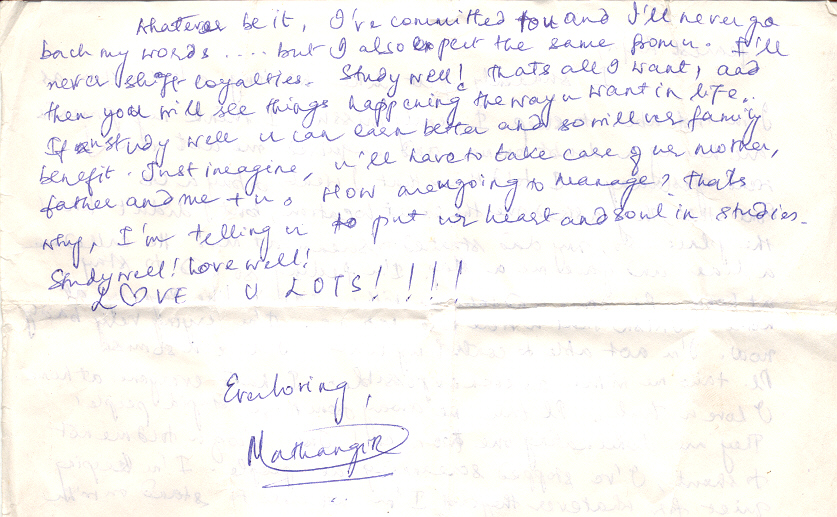 Whatever be it, I've committed you and I'll never go
back my words .... but I also expect the same from u. I'll
never shift loyalties. Study well! thats all I want, and
then you will see things happening the way u want in life.
If u study well u can earn better and so will ur family
benefit. Just imagine, u'll have to take care of ur mother,
father and me + u. How are u going to manage? thats
why, I'm telling u to put ur heart and soul in studies.
Study well! Love well!
L♡VE U LOTS!!!!
Everloving,
Mathangi R